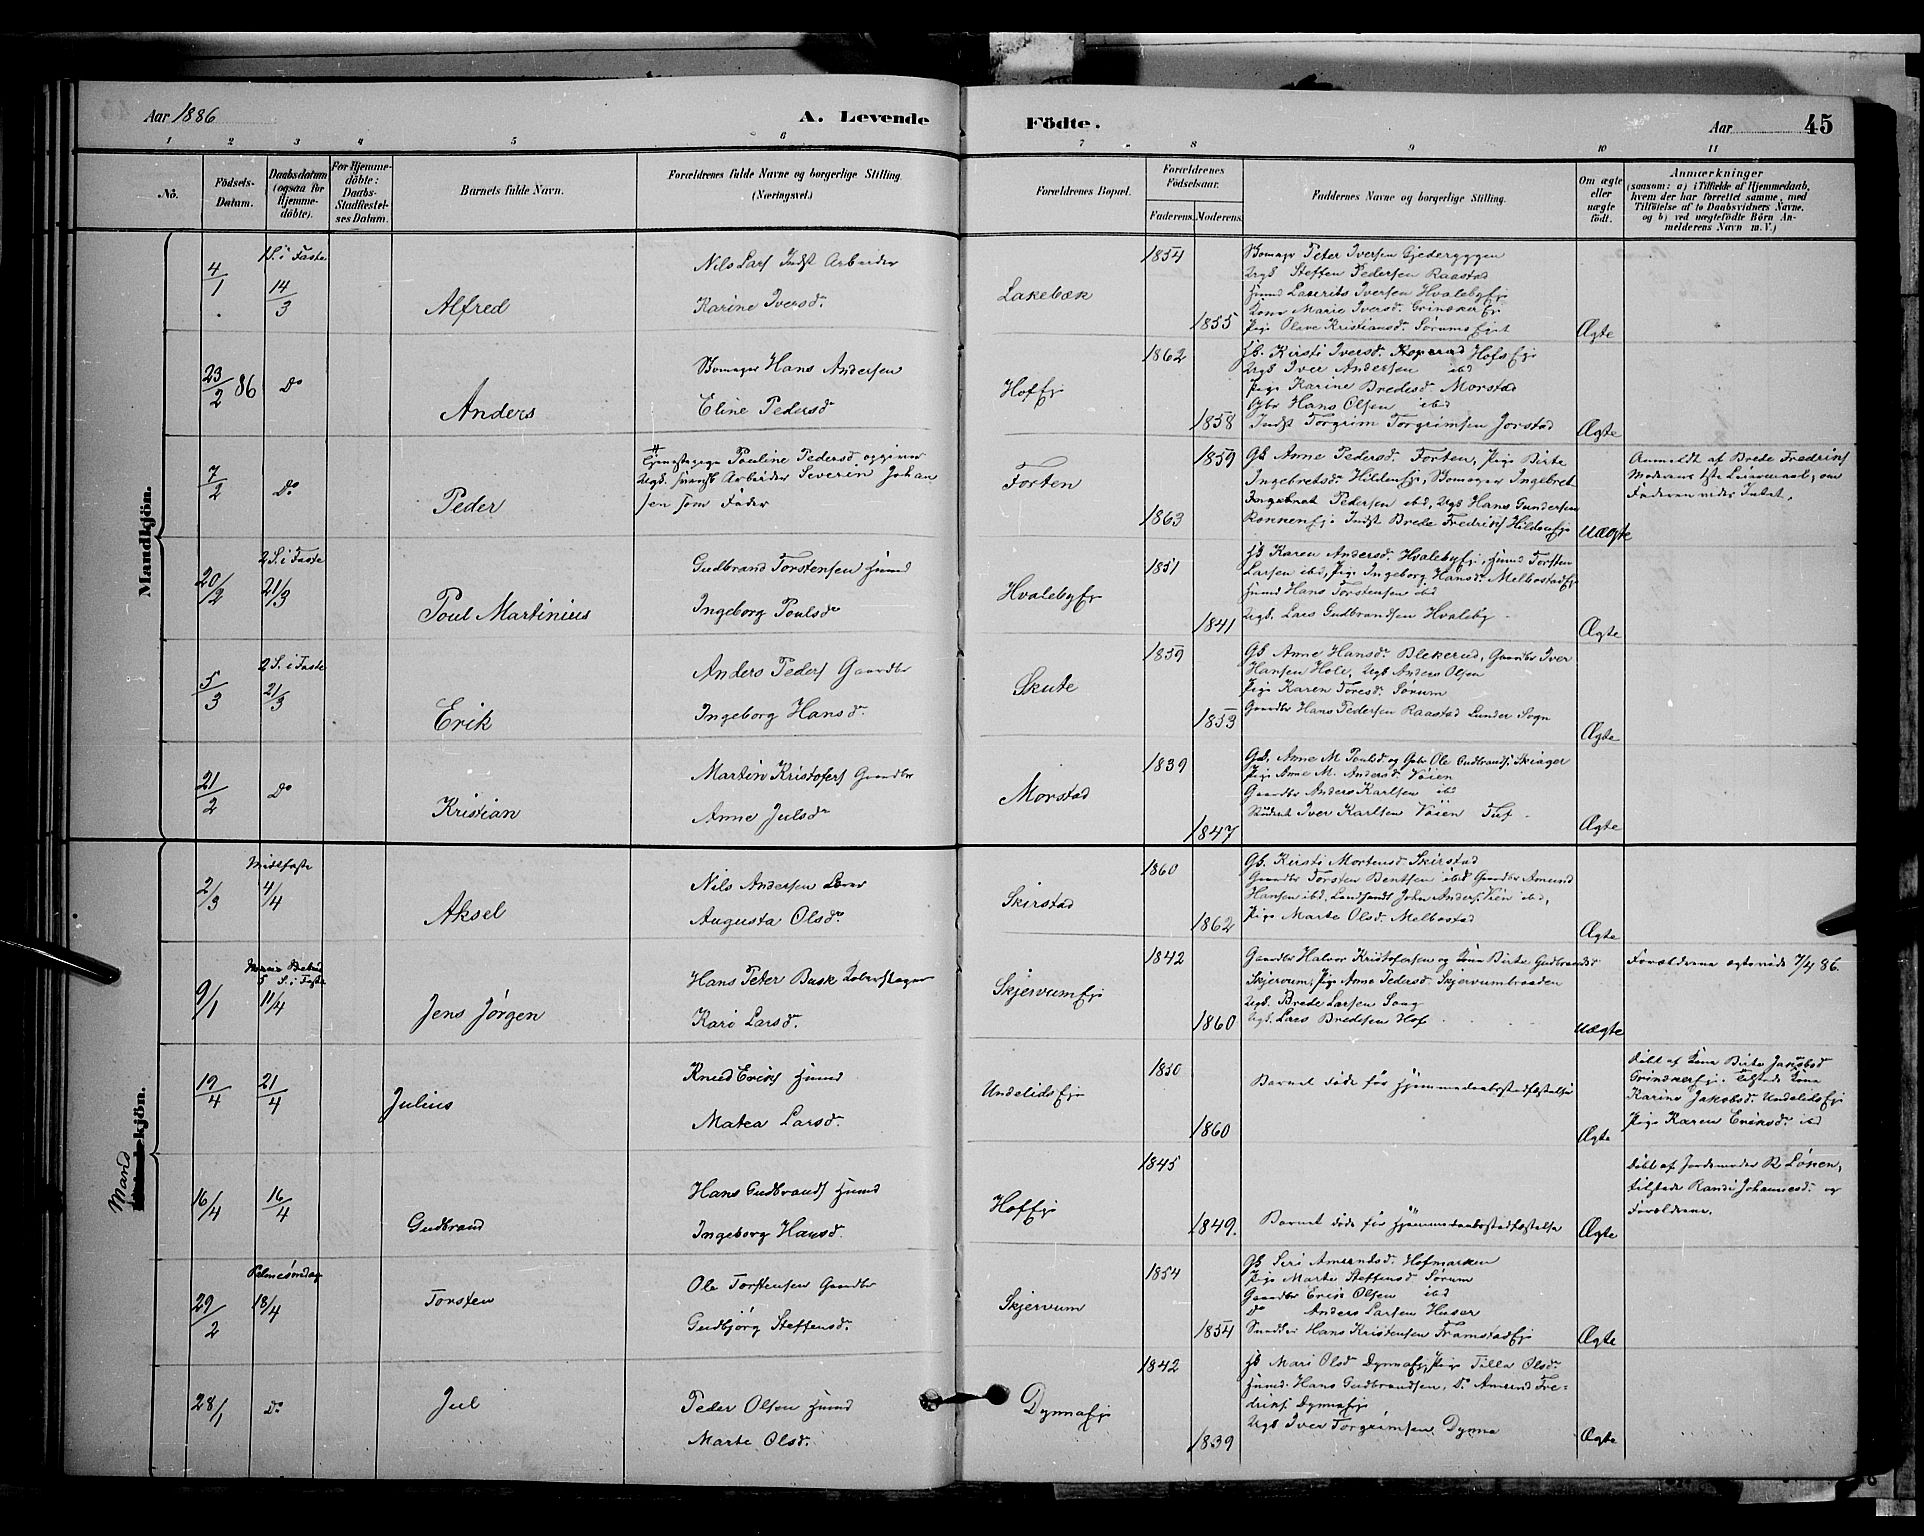 Aar 1886
A. Levende
Födte.
Aar 45
1 2 3 4 5 6 7 8 9 10 11
No.
Födsels-Datum.
Daabsdatum (ogsaa for Hjemmedöbte).
For Hjemmedöbte: Daabs-Stadfæstelses Datum.
Barnets fulde Navn.
Forældrenes fulde Navne og borgerlige Stilling (Næringsvei.)
Forældrenes Bopæl.
Forældrenes Födselsaar.
Faderens. Moderens.
Faddernes Navne og borgerlige Stilling.
Om ægte eller uægte födt.
Anmærkninger
(saasom: a) i Tilfælde af Hjemmedaab,
hvem der har forrettet samme, med
Tilföielse af to Daabsvidners Navne,
og b) ved uægtefödte Börn Anmelderens Navn m. V.)
Mandkjön.
4/1 1 S. i Faste 14/3
Alfred
Nils Lars Indst Arbeider
Karine Iversd.
Lakebæk
1854
1855
Peter Iversen
Ungk Steffen Pedersen Raastad
Iversen Hvalebyej
Kone Marie Iversd. Grindakerej
Pige Oline Kristiansd. Sørumsejet
Ægte
23/2 86 Do
Anders
Hans Andersen
Eline Pedersd
Hofej
1862
1858
Kirsti Iversd. Hofsej
Ungk Iver Andersen ibd
Pige Karine Bredesd Morstad
Gbr Hans Olsen ibd
Indst Torgrim Torgrimsen Jorstad
Ægte
7/2 Do
Peder
Tjenestepige Pouline Pedersd opgiver
Ungk. Arbeider Severin Johan
sen som Fader
Forten
1859
1863
Gk Anne Pedersd. Forten, Pige Birte
Ingebretsd. Hildenej, Ingebret
Ingebret Pedersen ibd, Ungk Hans Gundersen
Indst Brede Fredriks Hildenej
Uægte
Anmeldt af Brede Fredriks
Moderens 1ste Leiermaal, om
Faderen vides Intet.
20/2 2 S. i Faste 21/3
Poul Martinius
Gudbrand Torstensen Husmd
Ingeborg Poulsd.
Hvalebyej
1851
1841
Karen Andersd. Hvalebyej, Husmd Torsten
Larsen ibd, Pige Ingeborg Hansd. Melbostadej
Husmd Hans Torstensen ibd
Ungk. Lars Gudbrandsen Hvaleby
Ægte
5/3 2 S. i Faste 21/3
Erik
Anders Peders Gaardbr
Ingeborg Hansd.
Skute
1859
1853
Gk Anne Hansd. Blekerud, Gaardbr Iver
Hansen Hole, Ungk Anders Olsen
Pige Karen Toresd. Sørum
Gaardbr Hans Pedersen Raastad Lunder Sogn
Ægte
21/2 Do
Kristian
Martin Kristofers Gaardbr
Anne Julsd.
Morstad
1839
1847
Gk. Anne M. Poulsd og Gbr Ole Gudbrands Skiager
Pige Anne M. Andersd Vøien
Gaardbr Anders Karlsen ibd
Iver Karlsen Vøien
Ægte
Mandkjön.
2/3 Midtfaste 4/4
Aksel
Nils Andersen Lærer
Augusta Olsd.
Skirstad
1860
1862
Gk. Kirsti Mortensd Skirstad
Gaardbr Torsten Bentsen ibd Gaardbr Amund
Hansen ibd, John Anders ibd,
Pige Marte Olsd. Melbostad
Ægte
9/1 Mariæ 5 S. i Faste 11/4
Jens Jørgen
Hans Peter Busk
Kari Larsd.
Skjervumej
1842
1860
Gaardbr Halvor Kristofersen og Kone Birte Gudbrandsd
Skjervum, Pige Anne Pedersd. Skjervumbraaden
Ungk. Brede Larsen Soug
Ungk. Lars Bredesen Hof
Uægte
Forældrene ægteviede 7/4 86.
19/4 21/4
Julius
Knud Eriks Husmd
Matea Larsd.
Undelidsej
1850
1860
Barnet døde før Hjemmedaabsstadfæstelse
Ægte
døbt af Kone Birte Jakobsd
Grindakerej. Tilstede Kone
Karine Jakobsd. Undelidsej
Pige Karen Eriksd. ibd
16/4 16/4
Gudbrand
Hans Gudbrands Husmd
Ingeborg Hansd.
Hofej
1845
1849.
Barnet døde før Hjemmedaabsstadfæstelse
Ægte
døbt af Jordemoder R. Løken,
tilstede Randi Johannesd. og
Forældrene.
29/2 Palmesøndag 18/4
Torsten
Ole Torstensen Gaardbr
Gudbjørg Steffensd.
Skjervum
1854
1854
Gk Siri Amundsd. Hofmarken
Pige Marte Steffensd Sørum
Gaardbr Erik Olsen ibd
Do Anders Larsen Huser
Hans Kristensen Framstadej
Ægte
28/1 Do
Jul
Peder Olsen Husmd
Marte Olsd.
Dynnaej
1842
1839
Mari Olsd Dynnaej, Pige Tilla Olsd.
Husmd. Hans Gudbrandsen, Do Amund Fre-
driks Dynnaej
Ungk Iver Torgrimsen Dynna
Ægte